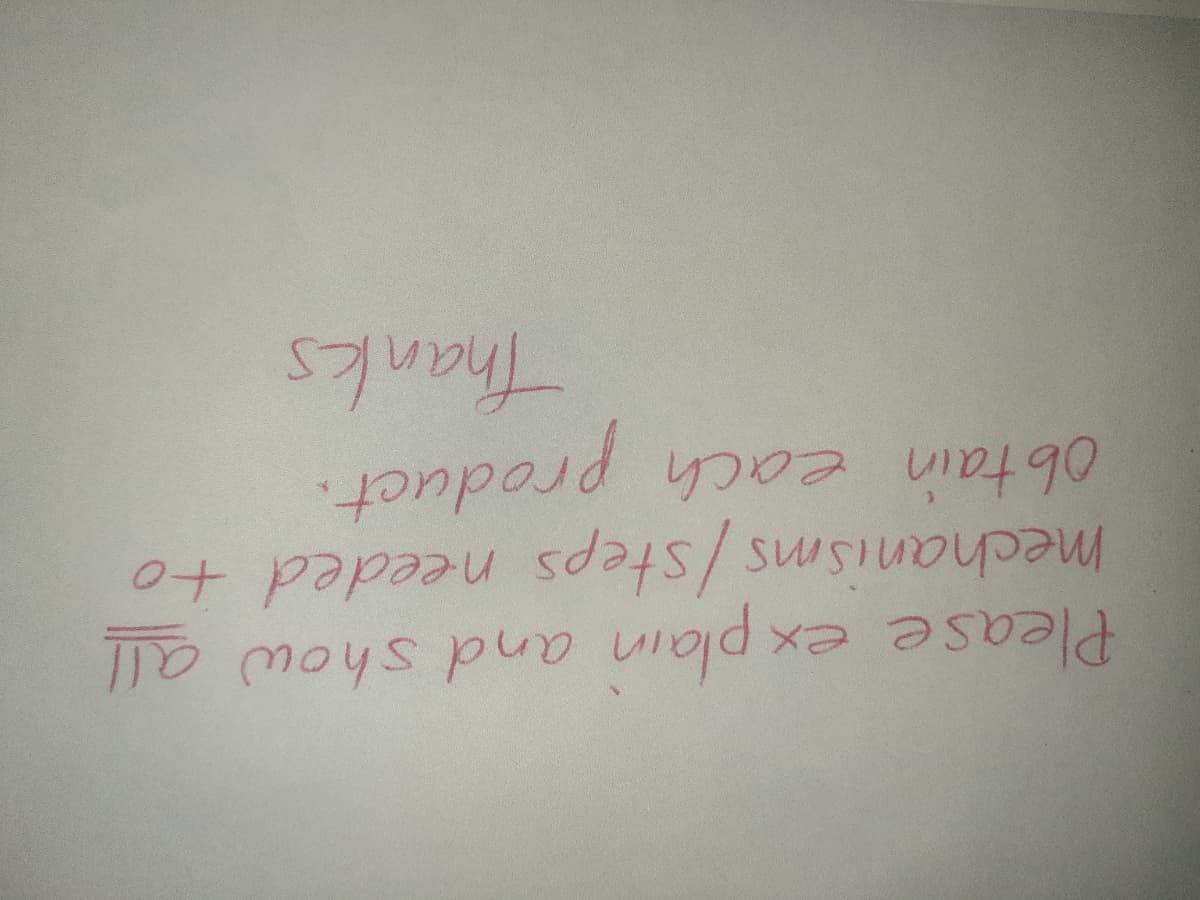 Please explain and show all
mechanisms/steps needed to
obtain each product.
Thanks